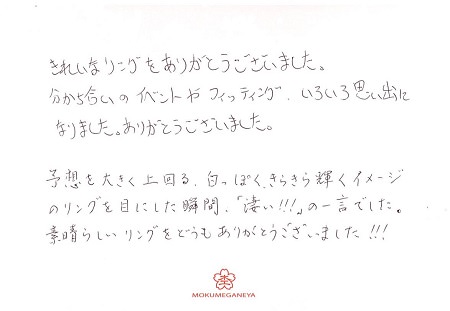 きれいなリングをありがとうございました。
分かち合いのイベントやフィッティング、いろいろ思い出に
なりました。ありがとうございました。
予想を大きく上回る、白っぽく、きらきら輝くイメージ
のリングを目にした瞬間、「凄い!!!」の一言でした。
素晴らしいリングをどうもありがとうございました!!!
MOKUMEGANEYA